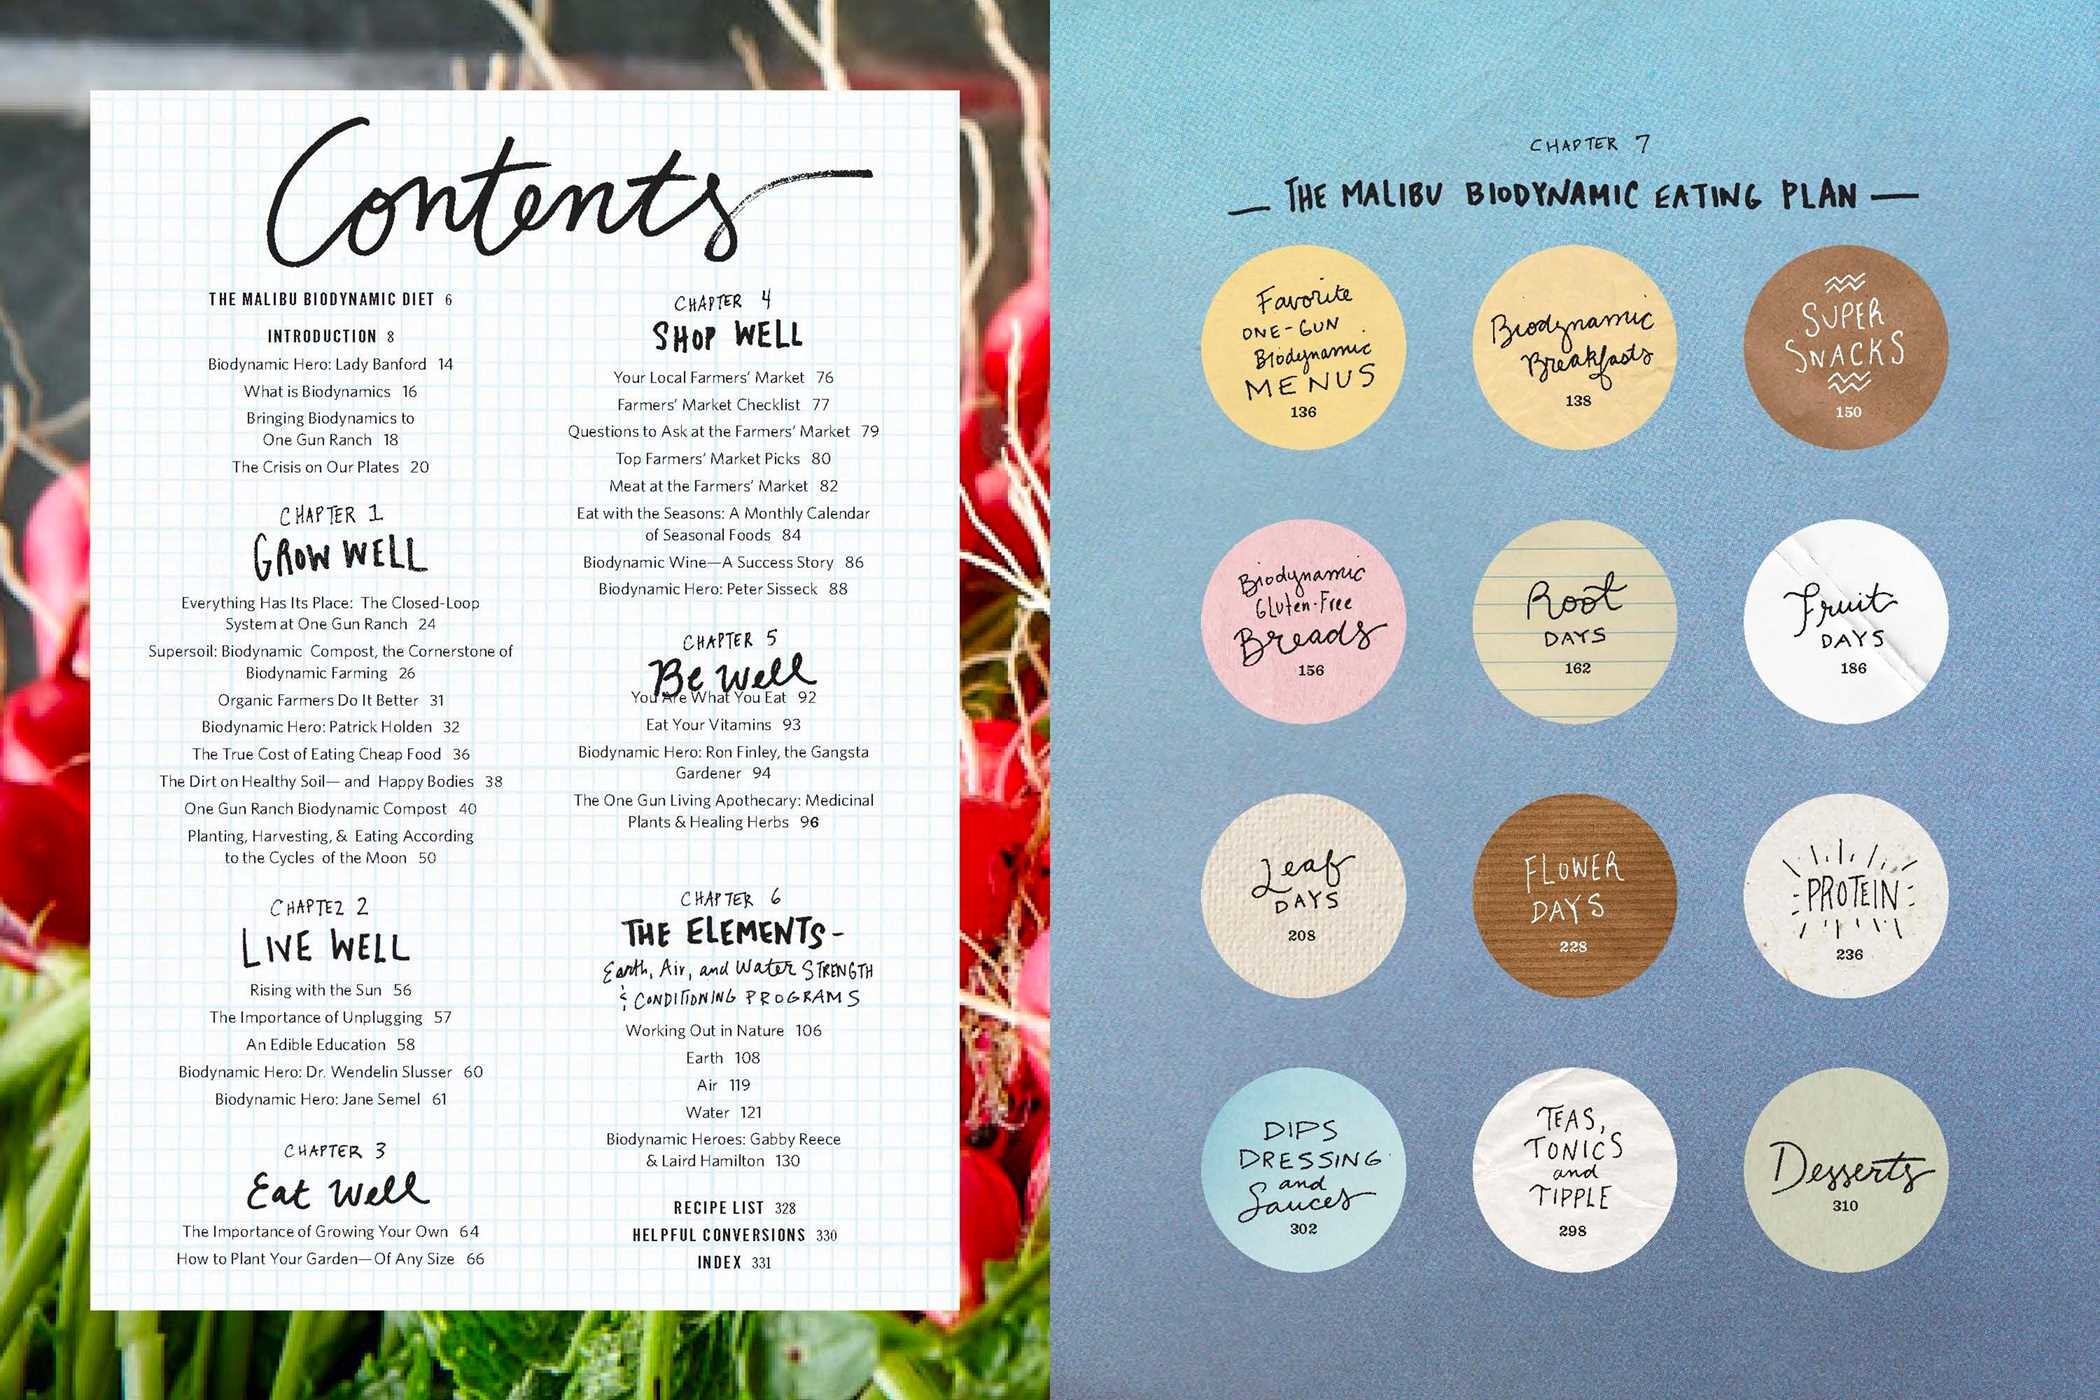 Contents
THE MALIBU BIODYNAMIC DIET 6
INTRODUCTION 8
Biodynamic Hero: Lady Banford 14
What is Biodynamics 16
Bringing Biodynamics to
One Gun Ranch 18
The Crisis on Our Plates 20
CHAPTER 1
GROW WELL
Everything Has Its Place: The Closed-Loop
System at One Gun Ranch 24
Supersoil: Biodynamic Compost, the Cornerstone of
Biodynamic Farming 26
Organic Farmers Do It Better 31
Biodynamic Hero: Patrick Holden 32
The True Cost of Eating Cheap Food 36
The Dirt on Healthy Soil— and Happy Bodies 38
One Gun Ranch Biodynamic Compost 40
Planting, Harvesting, & Eating According
to the Cycles of the Moon 50
CHAPTER 2
LIVE WELL
Rising with the Sun 56
The Importance of Unplugging 57
An Edible Education 58
Biodynamic Hero: Dr. Wendelin Slusser 60
Biodynamic Hero: Jane Semel 61
CHAPTER 3
Eat Well
The Importance of Growing Your Own 64
How to Plant Your Garden—Of Any Size 66
CHAPTER 4
SHOP WELL
Your Local Farmers' Market 76
Farmers' Market Checklist 77
Questions to Ask at the Farmers' Market 79
Top Farmers' Market Picks 80
Meat at the Farmers' Market 82
Eat with the Seasons: A Monthly Calendar
of Seasonal Foods 84
Biodynamic Wine—A Success Story 86
Biodynamic Hero: Peter Sisseck 88
CHAPTER 5
Be Well
You Are What You Eat 92
Eat Your Vitamins 93
Biodynamic Hero: Ron Finley, the Gangsta
Gardener 94
The One Gun Living Apothecary: Medicinal
Plants & Healing Herbs 96
CHAPTER 6
THE ELEMENTS-
Earth, Air, and Water STRENGTH
& CONDITIONING PROGRAMS
Working Out in Nature 106
Earth 108
Air 119
Water 121
Biodynamic Heroes: Gabby Reece
& Laird Hamilton 130
RECIPE LIST 328
HELPFUL CONVERSIONS 330
INDEX 331
CHAPTER 7
— THE MALIBU BIODYNAMIC EATING PLAN —
Favorite
ONE-GUN
Biodynamic
MENUS
136
Biodynamic
Breakfasts
138
SUPER
SNACKS
150
Biodynamic
Gluten-Free
Breads
156
Root
DAYS
162
Fruit
DAYS
186
Leaf
DAYS
208
FLOWER
DAYS
228
PROTEIN
236
DIPS
DRESSING
and
Sauces
302
TEAS,
TONICS
and
TIPPLE
298
Desserts
310